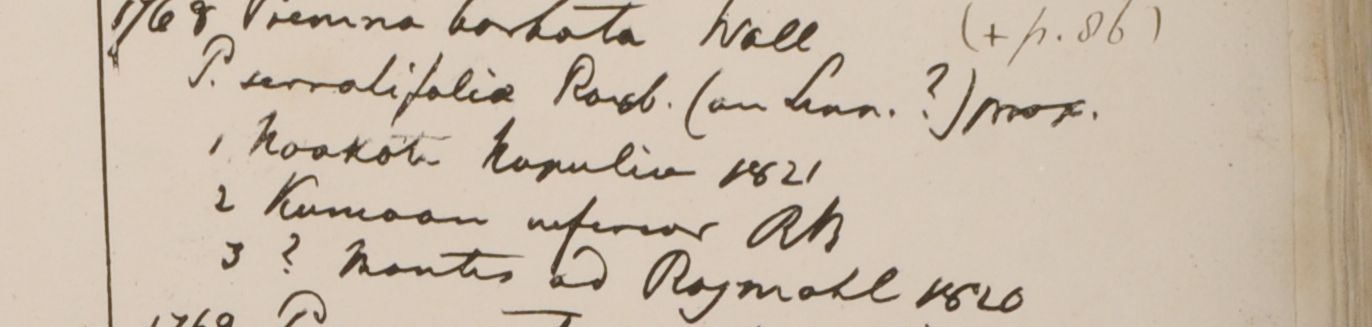 1768 Premna barbata Wall (+ p. 86)
P. serratifolia Roxb. (an Linn. ?) prox.
1 Noakote Napuliae 1821
2 Kumaon inferior RB
3 ? Montes ad Rajmahl 1820
1769 P.